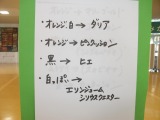 ・オレンジ、白 → ダリア
・オレンジ → ピンクッション
・黒 → ヒエ
・白っぽ →
エリンジューム
シリウスクエスター